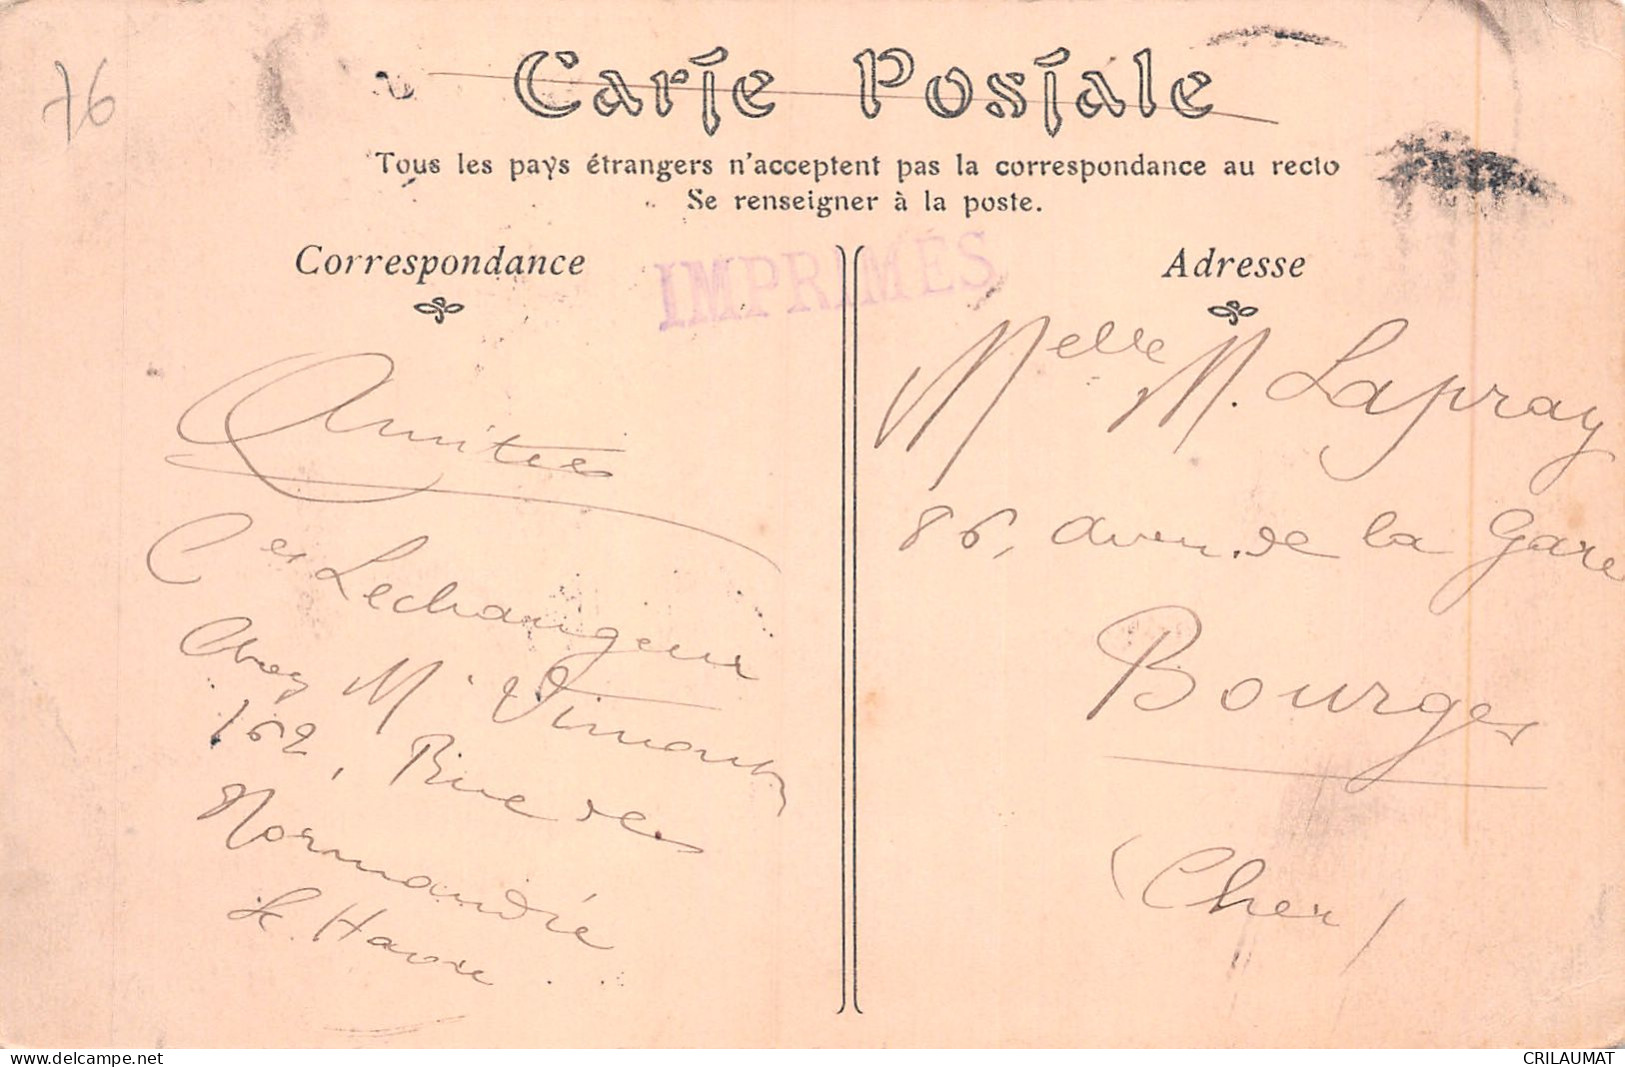 76
Carte Postale
Tous les pays étrangers n'acceptent pas la correspondance au recto
Se renseigner à la poste.
Correspondance
IMPRIMÉS
Amitiés
Ces Lechangeur
Chez Mr
162, Rue de
Normandie
Le Havre
Adresse
Melle M. Lapray
86, Aven. de la Gare
Bourges
(Cher)
www.delcampe.net
CRILAUMAT